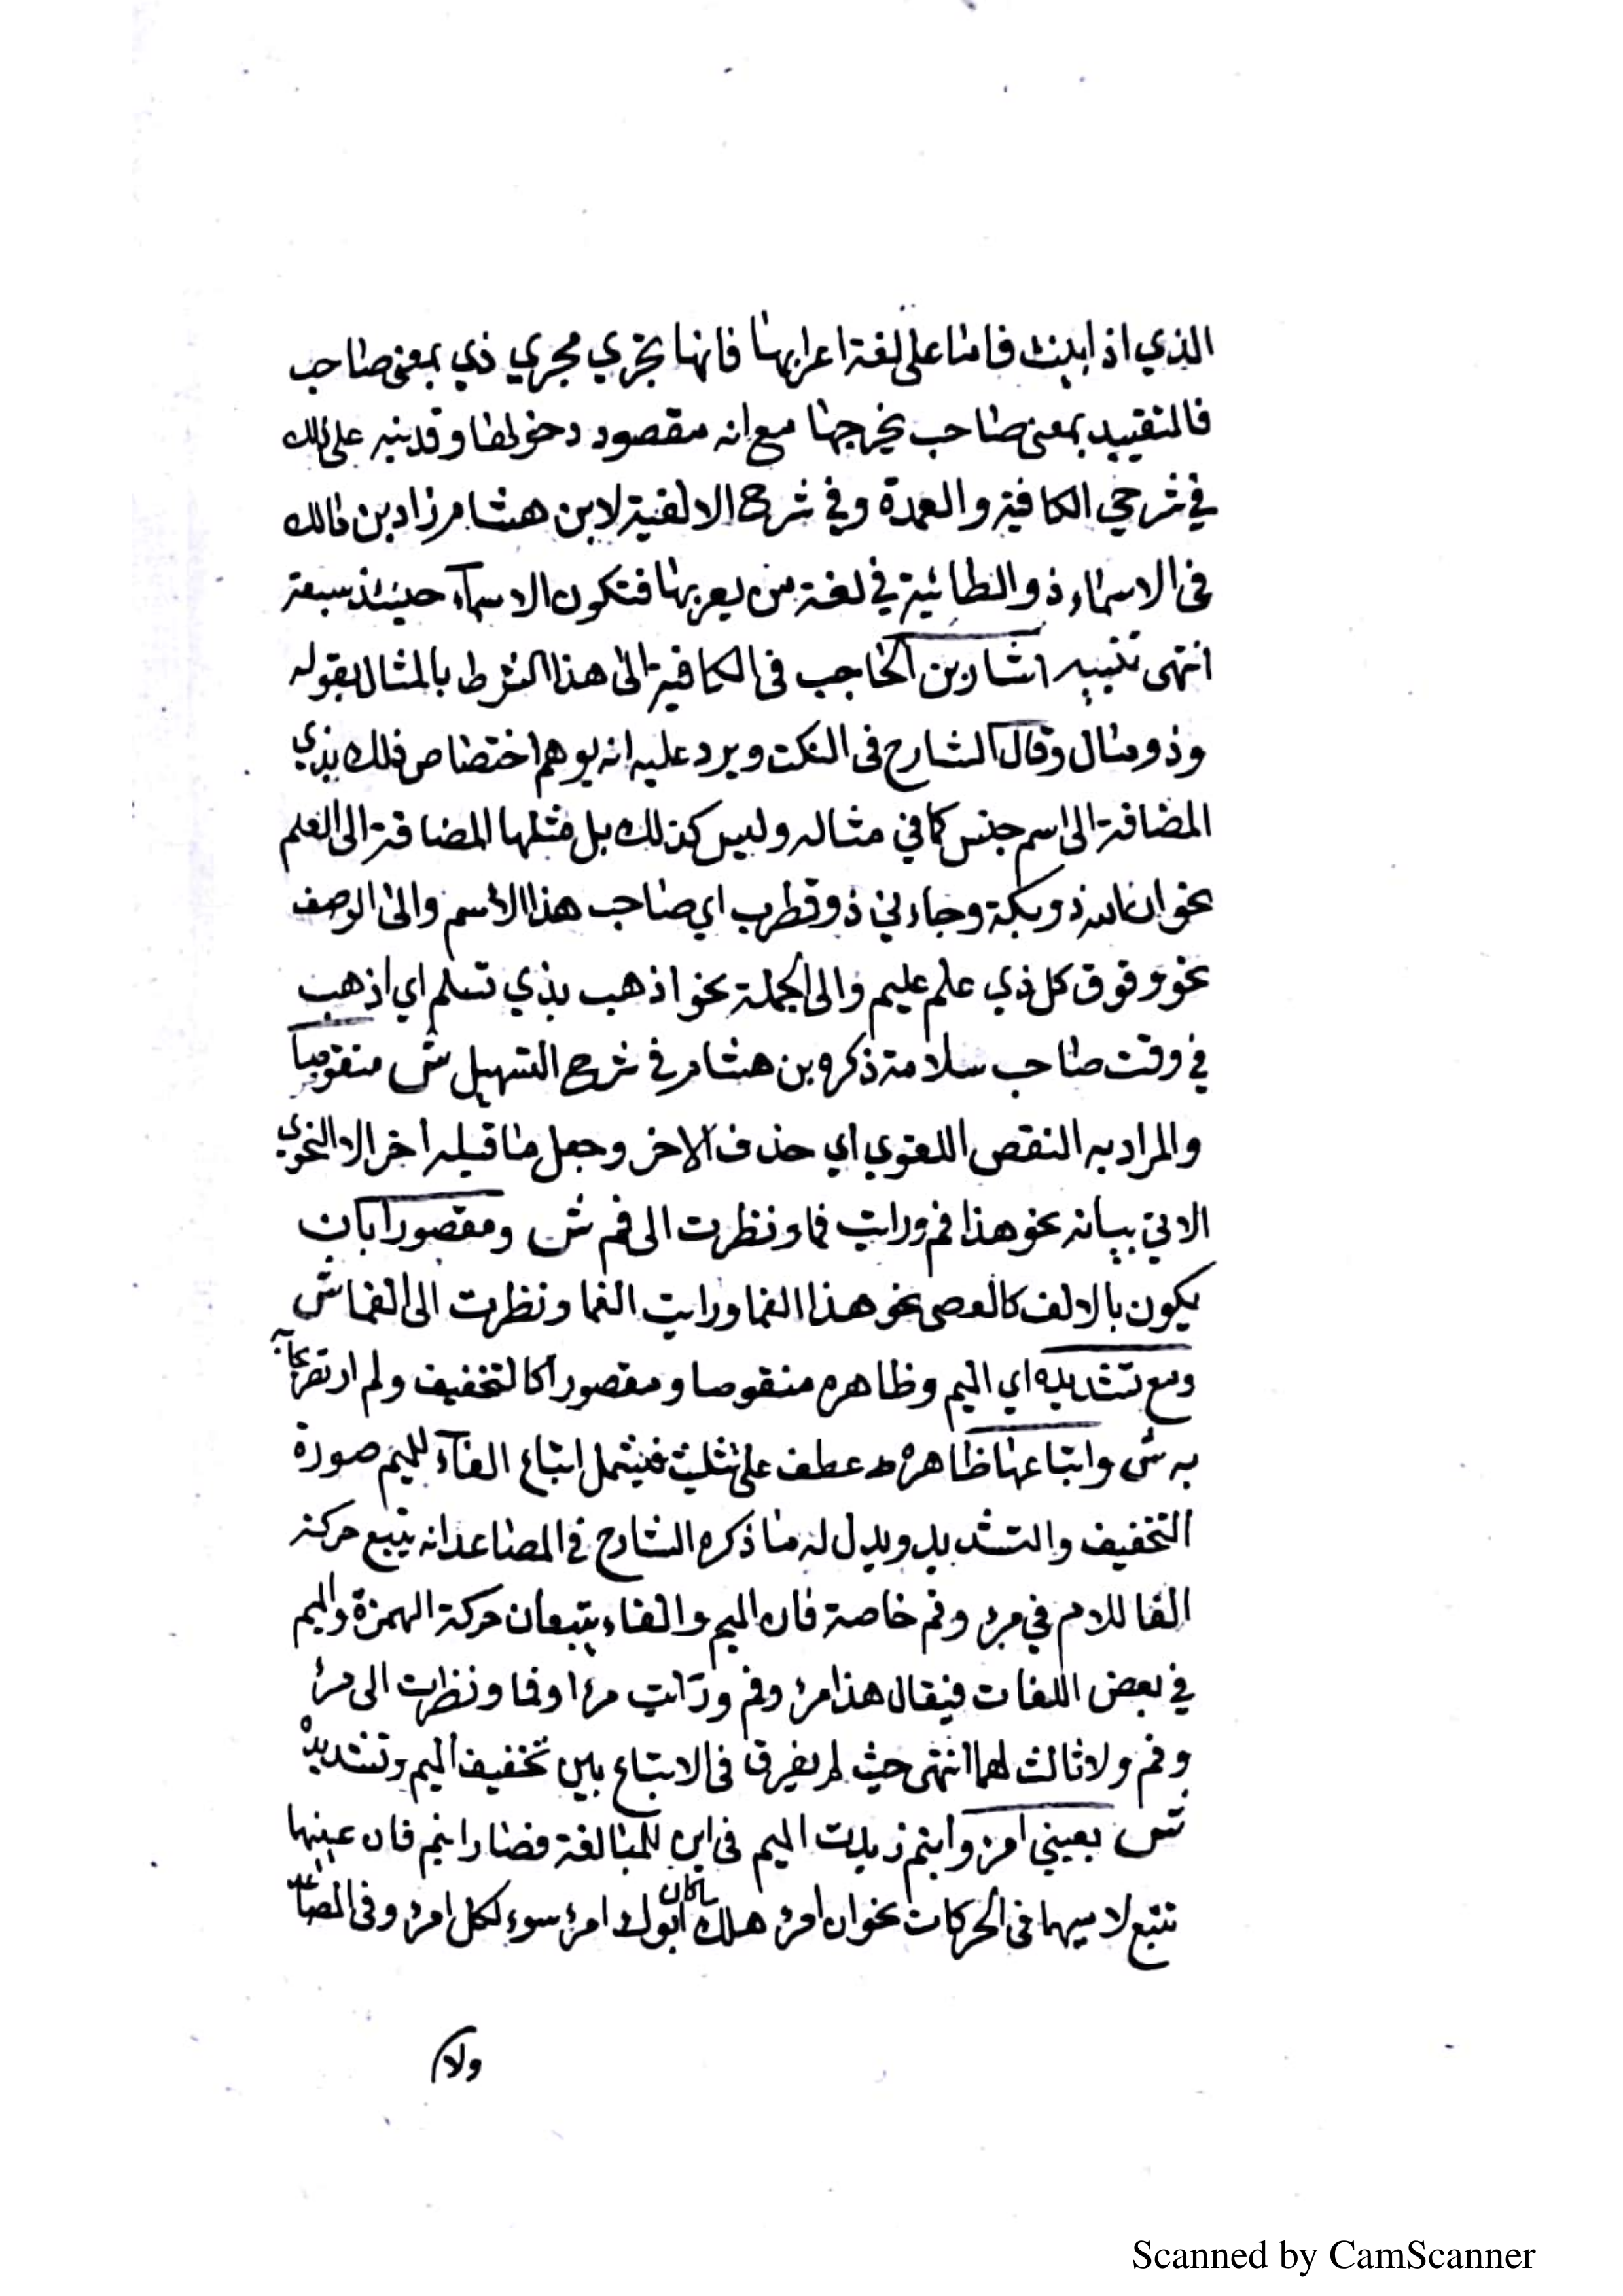 الذي اذا بنيت فاما على لغة اعرابها فانها تجري مجري ذي بمعنى صاحب
فالتقييد بمعنى صاحب يخرجها مع انه مقصود دخولها وقد نبه على ذلك
في شرحي الكافية والعمدة وفي شرح الالفية لابن هشام زاد بن مالك
فى الاسماء ذو الطائية في لغة من يعربها فتكون الاسماء حينئذ سبعة
انتهى تنبيه اشار بن الحاجب فى الكافية الى هذا الشرط بالمثال بقوله
وذو مال وقال الشارح فى النكت ويرد عليه انه يوهم اختصاص ذلك بذي
المضافة الى اسم جنس كما في مثاله وليس كذلك بل مثلها المضافة الى العلم
نحو ان الله ذو بكة وجاءني ذو قطرب اي صاحب هذا الاسم والى الوصف
نحو وفوق كل ذي علم عليم والى الجملة نحو اذهب بذي تسلم اي اذهب
في وقت صاحب سلامة ذكره بن هشام في شرح التسهيل ش منقوصا
والمراد به النقص اللغوي اي حذف الاخر وجعل ما قبله اخر الا النحوي
الاتي بيانه نحو هذا فم ورايت فما ونظرت الى فم ش ومقصورا بان
يكون بالالف كالعصى نحو هذا الفما ورايت الفما ونظرت الى الفما ش
ومع تشديده اي الميم وظاهره منقوصا ومقصورا كالتخفيف ولم ار تصريحا
به ش واتباعها ظاهره عطف على تثليث فيشمل اتباع الفآء للميم صورة
التخفيف والتشديد ويدل له ما ذكره الشارح في المصاعد انه يتبع حركة
الفا للام في مرء وفم خاصة فان الميم والفاء يتبعان حركة الهمزة والميم
في بعض اللغات فيقال هذا مرء وفم ورايت مرءا وفما ونظرت الى مرء
وفم ولا ثالث لهما انتهى حيث لم يفرق فى الاتباع بين تخفيف الميم وتشديده
ش بعيني امرء وابنم زيدت الميم فى ابن للمبالغة فصار ابنم فان عينهما
تتبع لاميهما فى الحركات نحو ان امرء هلك ماكان ابوك امرء سوء لكل امرء وفى المصاعد
ولا
Scanned by CamScanner